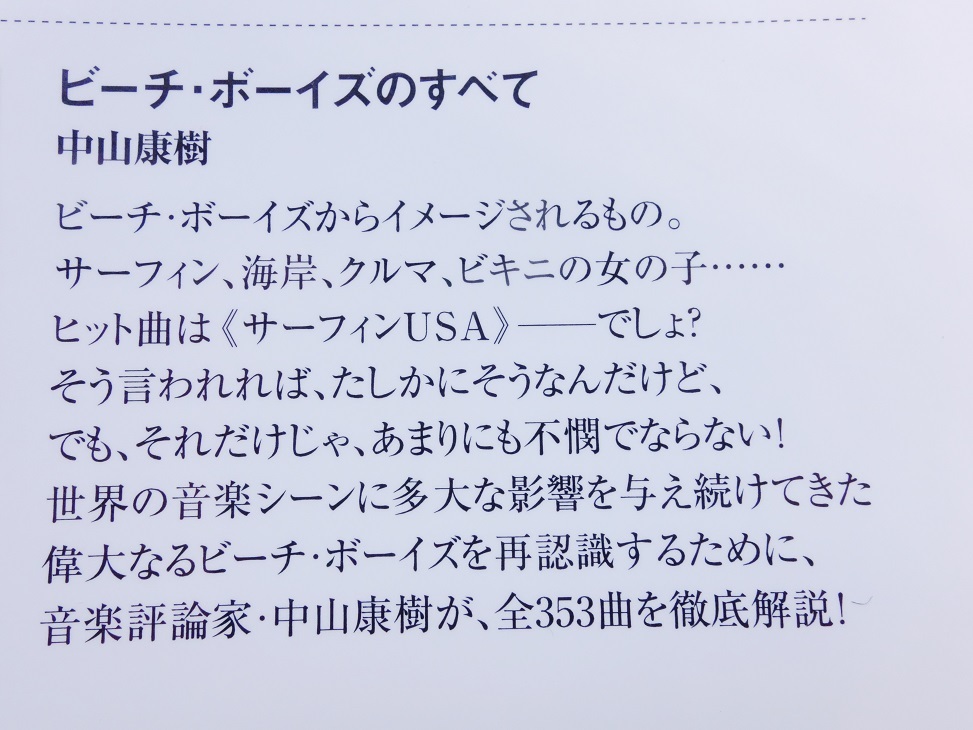 ビーチ・ボーイズのすべて
中山康樹
ビーチ・ボーイズからイメージされるもの。
サーフィン、海岸、クルマ、ビキニの女の子……
ヒット曲は《サーフィンUSA》──でしょ?
そう言われれば、たしかにそうなんだけど、
でも、それだけじゃ、あまりにも不憫でならない!
世界の音楽シーンに多大な影響を与え続けてきた
偉大なるビーチ・ボーイズを再認識するために、
音楽評論家・中山康樹が、全353曲を徹底解説!